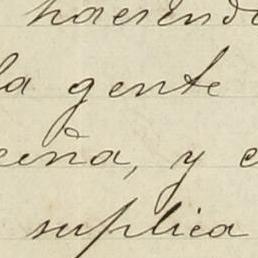 haciendo
la gente
eña, y
suplica